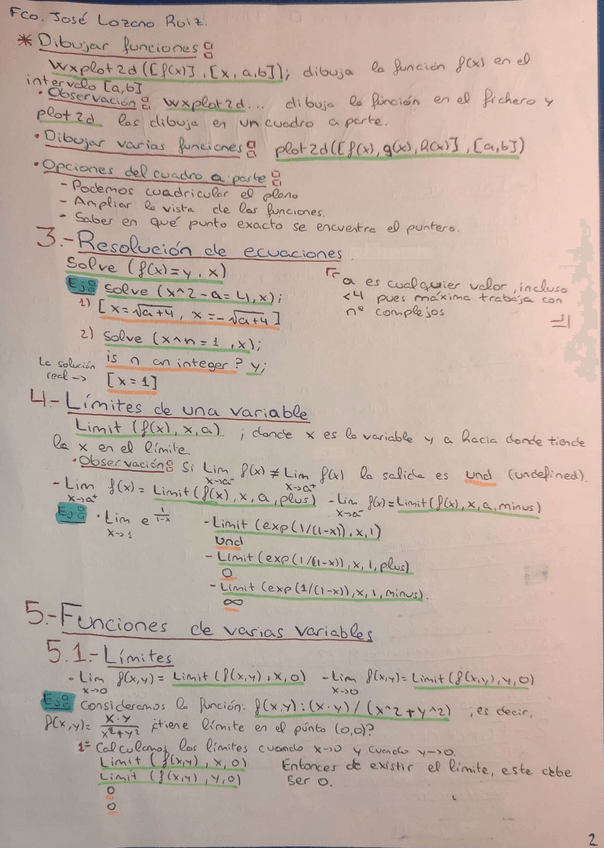 Fco. José Lozano Ruiz.
* Dibujar funciones:
wxplot2d([f(x)], [x, a, b]); dibuja la función f(x) en el
intervalo [a,b]
· Observación: wxplot2d... dibuja la función en el fichero y
plot2d las dibuja en un cuadro a parte.
· Dibujar varias funciones: plot2d([f(x), g(x), h(x)], [a,b])
· Opciones del cuadro a parte:
- Podemos cuadricular el plano
- Ampliar la vista de las funciones.
- Saber en qué punto exacto se encuentra el puntero.
3.- Resolución de ecuaciones
Solve (f(x)=y, x)
Ej: Solve (x^2-a=4, x);
1) [x=√a+4, x=-√a+4]
a es cualquier valor, incluso
<4 pues máxima trabaja con
nº complejos
2) Solve (x^n=1, x);
is n an integer? y;
La solución
real → [x=1]
4.- Límites de una variable
Limit (f(x), x, a) ; donde x es la variable y a hacia donde tiende
la x en el límite.
· Observación: Si Lim x→a⁻ f(x) ≠ Lim x→a⁺ f(x) la salida es und (undefined).
- Lim x→a⁺ f(x) = Limit (f(x), x, a, plus) - Lim x→a⁻ f(x) = Limit (f(x), x, a, minus)
Ej: · Lim x→1 e^(1/1-x) - Limit (exp(1/(1-x)), x, 1)
und
- Limit (exp(1/(1-x)), x, 1, plus)
0
- Limit (exp(1/(1-x)), x, 1, minus).
∞
5.- Funciones de varias variables
5.1.- Límites
- Lim x→0 f(x,y) = Limit (f(x,y), x, 0) - Lim x→0 f(x,y) = Limit (f(x,y), y, 0)
Ej: Consideramos la función: f(x,y):(x·y)/(x^2+y^2) , es decir,
f(x,y)= x·y/x²+y² ¿tiene límite en el punto (0,0)?
1º Calculamos los límites cuando x→0 y cuando y→0.
Limit (f(x,y), x, 0) Entonces de existir el límite, este debe
Limit (f(x,y), y, 0) ser 0.
0
0
2